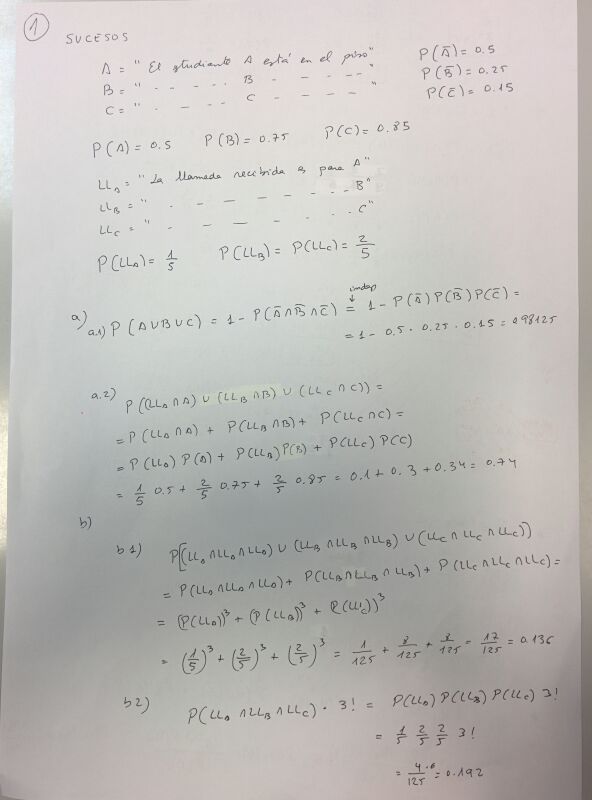 1
SUCESOS
A = "El estudiante A está en el piso" P(A̅) = 0.5
B = " - - - - - B - - - - - " P(B̅) = 0.25
C = " - - - - C - - - - " P(C̅) = 0.15
P(A) = 0.5 P(B) = 0.75 P(C) = 0.85
LL_A = "La llamada recibida es para A"
LL_B = " - - - - - - - B"
LL_C = " - - - - - - C"
P(LL_A) = 1/5 P(LL_B) = P(LL_C) = 2/5
a)
indep
↓
a.1) P(A∪B∪C) = 1 - P(A̅∩B̅∩C̅) = 1 - P(A̅)P(B̅)P(C̅) =
= 1 - 0.5 · 0.25 · 0.15 = 0.98125
a.2) P((LL_A∩A) ∪ (LL_B∩B) ∪ (LL_C∩C)) =
= P(LL_A∩A) + P(LL_B∩B) + P(LL_C∩C) =
= P(LL_A) P(A) + P(LL_B) P(B) + P(LL_C) P(C)
= 1/5 0.5 + 2/5 0.75 + 2/5 0.85 = 0.1 + 0.3 + 0.34 = 0.74
b)
b1) P[(LL_A∩LL_A∩LL_A) ∪ (LL_B∩LL_B∩LL_B) ∪ (LL_C∩LL_C∩LL_C))
= P(LL_A∩LL_A∩LL_A) + P(LL_B∩LL_B∩LL_B) + P(LL_C∩LL_C∩LL_C) =
= (P(LL_A))³ + (P(LL_B))³ + P(LL_C))³
= (1/5)³ + (2/5)³ + (2/5)³ = 1/125 + 8/125 + 8/125 = 17/125 = 0.136
b2) P(LL_A∩LL_B∩LL_C) · 3! = P(LL_A) P(LL_B) P(LL_C) 3!
= 1/5 2/5 2/5 3!
= 4·6/125 = 0.192